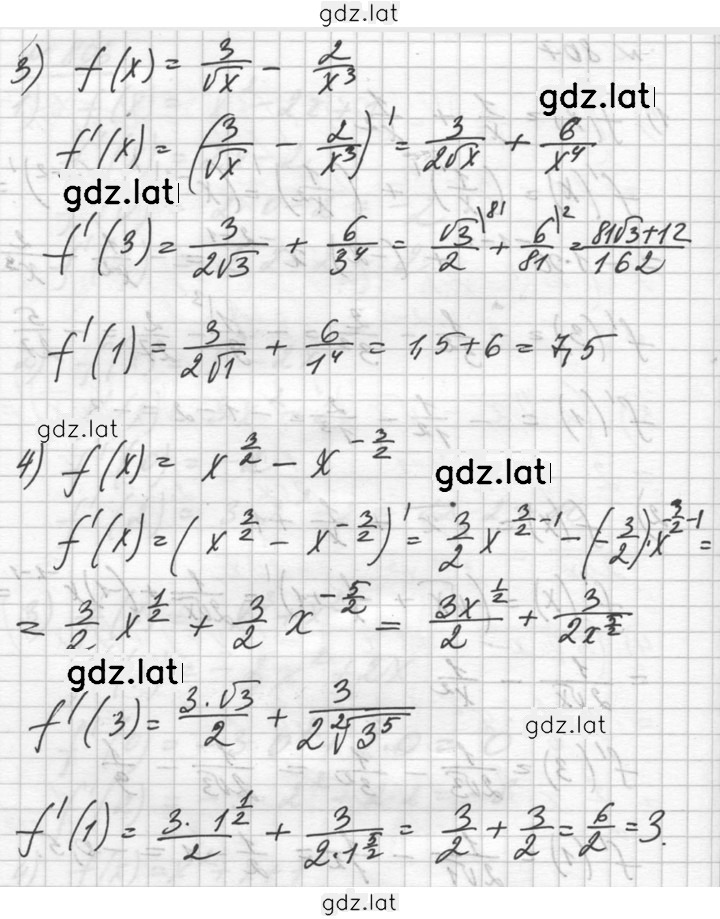 gdz.lat
3) f(x) = 3/√x − 2/x³
gdz.lat
f'(x) = (3/√x − 2/x³)' = 3/(2√x) + 6/x⁴
gdz.lat
f'(3) = 3/(2√3) + 6/3⁴ = √3/2 |81 + 6/81 |2 = (81√3+12)/162
f'(1) = 3/(2√1) + 6/1⁴ = 1,5+6 = 7,5
gdz.lat
4) f(x) = x^(3/2) − x^(−3/2)
gdz.lat
f'(x) = (x^(3/2) − x^(−3/2))' = 3/2 x^(3/2−1) − (−3/2)·x^(−3/2−1) =
= 3/2 x^(1/2) + 3/2 x^(−5/2) = 3x^(1/2)/2 + 3/(2x^(5/2))
gdz.lat
f'(3) = (3·√3)/2 + 3/(2 ²√(3⁵))
gdz.lat
f'(1) = (3·1^(1/2))/2 + 3/(2·1^(5/2)) = 3/2 + 3/2 = 6/2 = 3.
gdz.lat